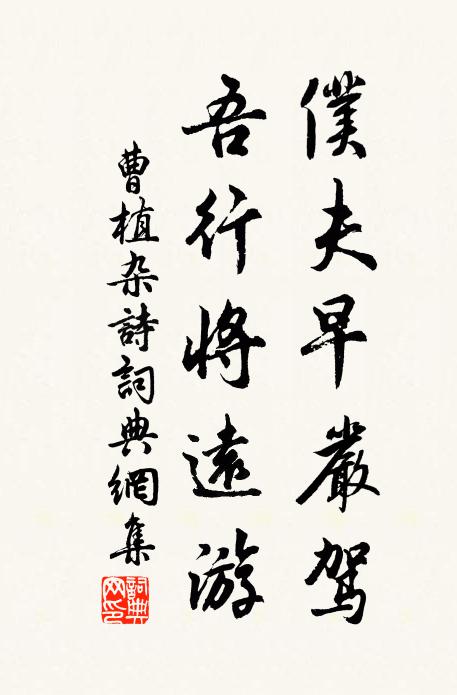 僕夫早嚴駕
吾行將遠游
曹植杂詩詞典網集
詞典網印